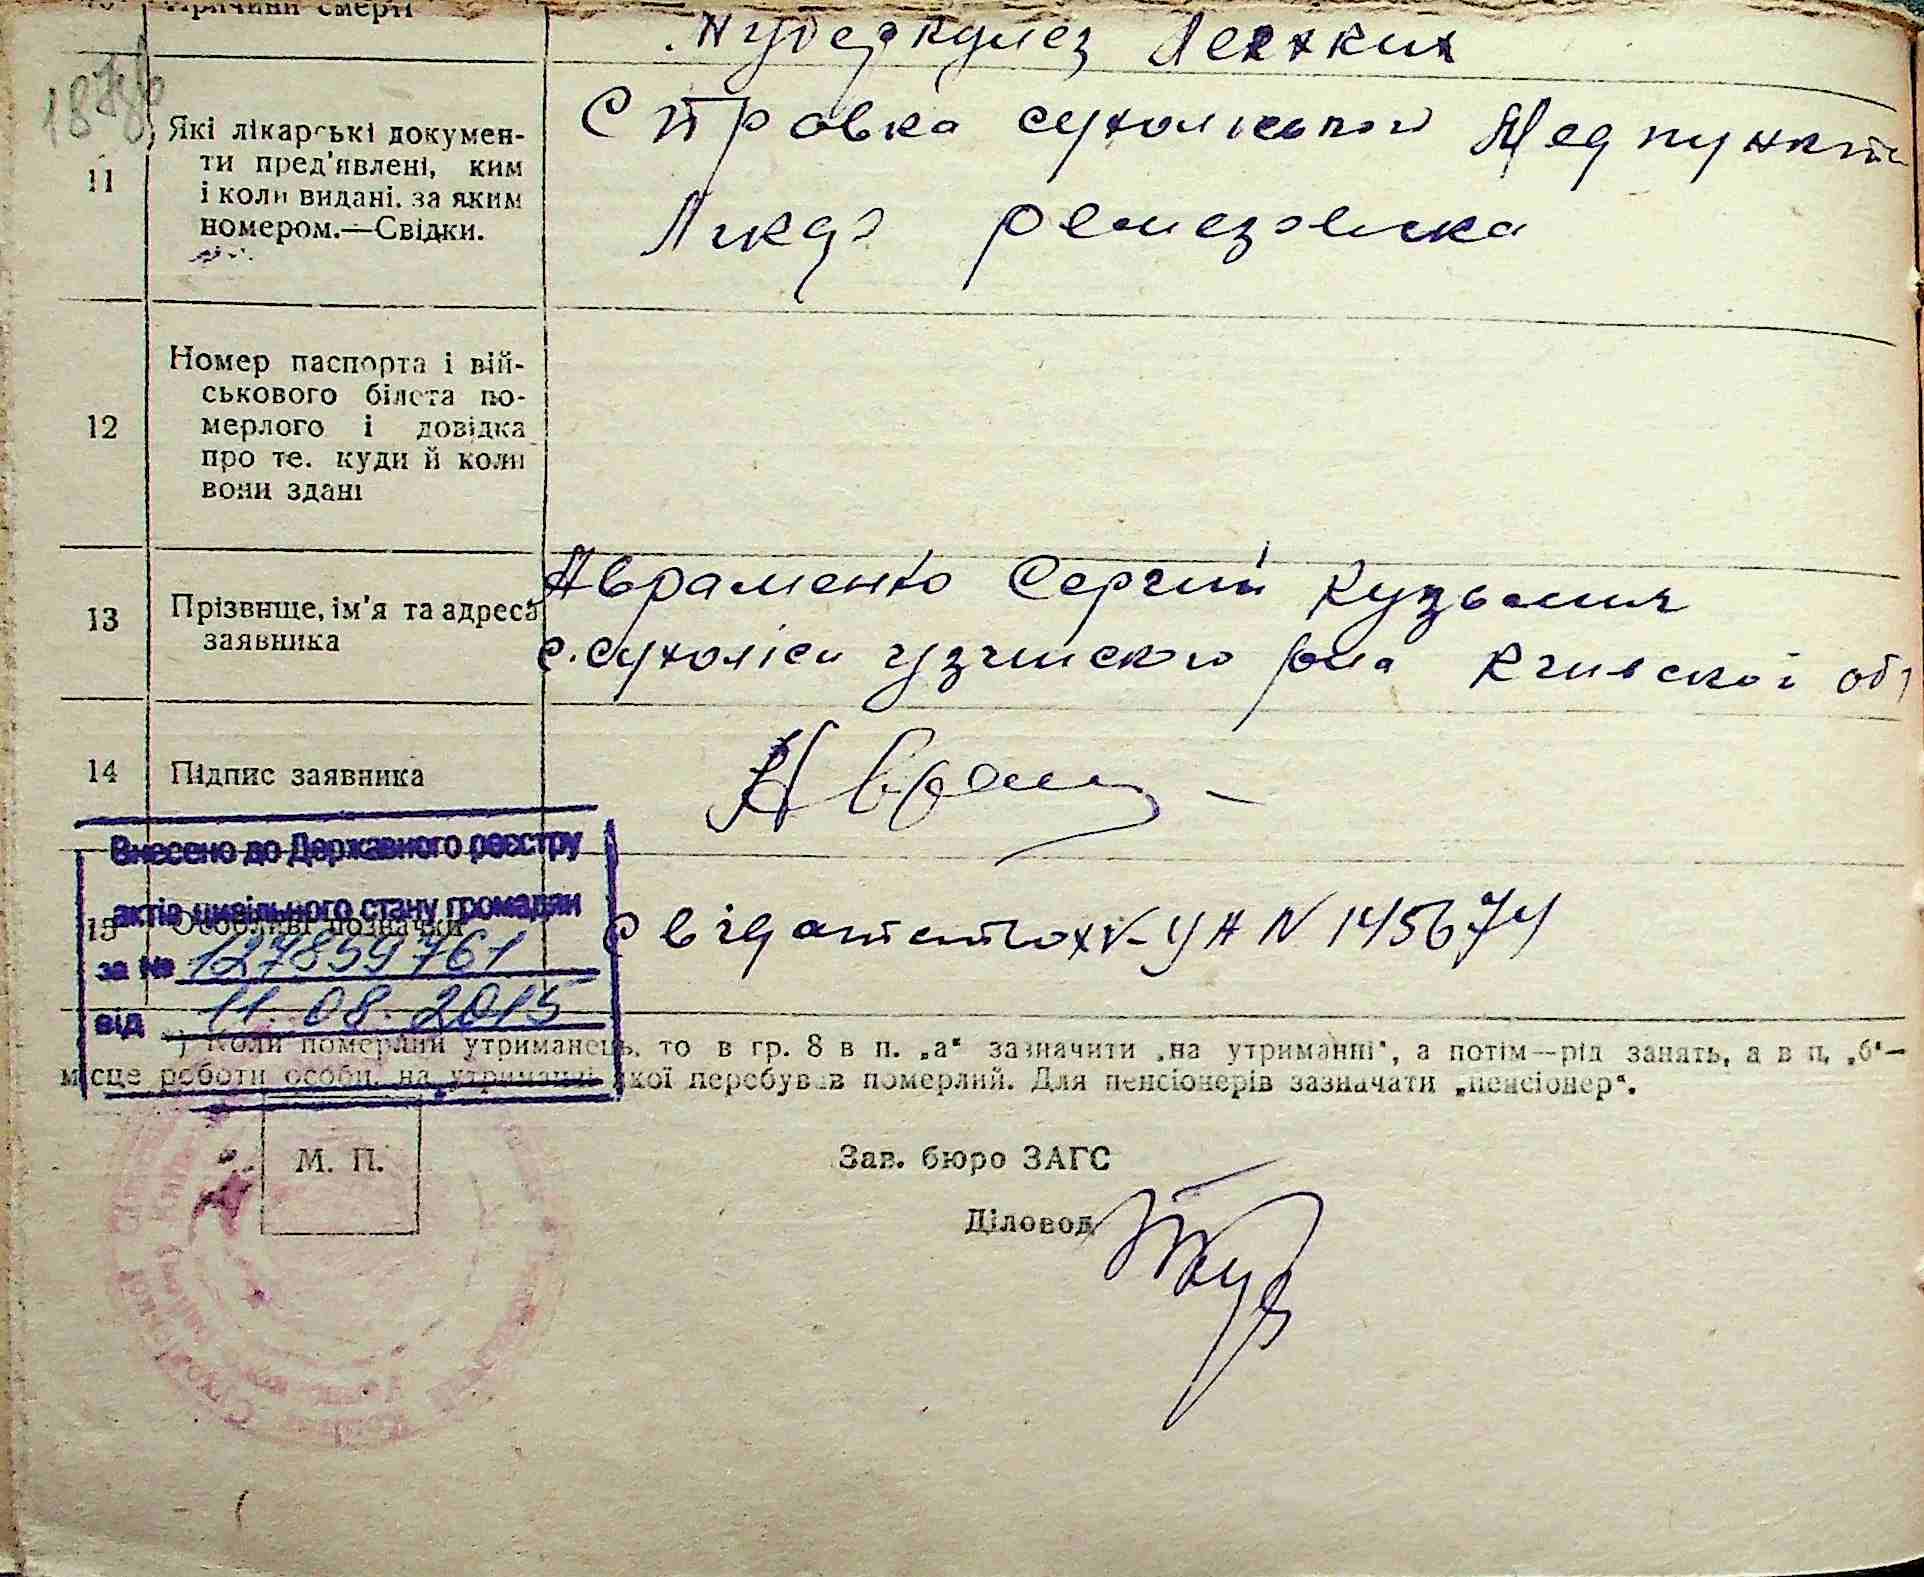 Причини смерті
Туберкулез легких
1878
11
Які лікарські докумен-
ти пред'явлені, ким
і коли видані, за яким
номером.—Свідки.
Справка сухоліського Медпункта
Лікар
12
Номер паспорта і вій-
ськового білета по-
мерлого і довідка
про те, куди й коли
вони здані
13
Прізвище, ім'я та адреса
заявника
Авраменко Сергій Кузьмич
с. сухоліси узинского р-на Київской обл
14
Підпис заявника
Авраме
15
Особливі позначки
Внесено до Державного реєстру
актів цивільного стану громадян
за № 127859761
від 11.08.2015
N 145674
*) Коли померлий утриманець, то в гр. 8 в п. „а“ зазначити „на утриманні“, а потім—рід занять, а в п. „б“—
місце роботи особи, на утриманні якої перебував померлий. Для пенсіонерів зазначати „пенсіонер“.
М. П.
Зав. бюро ЗАГС
Діловод